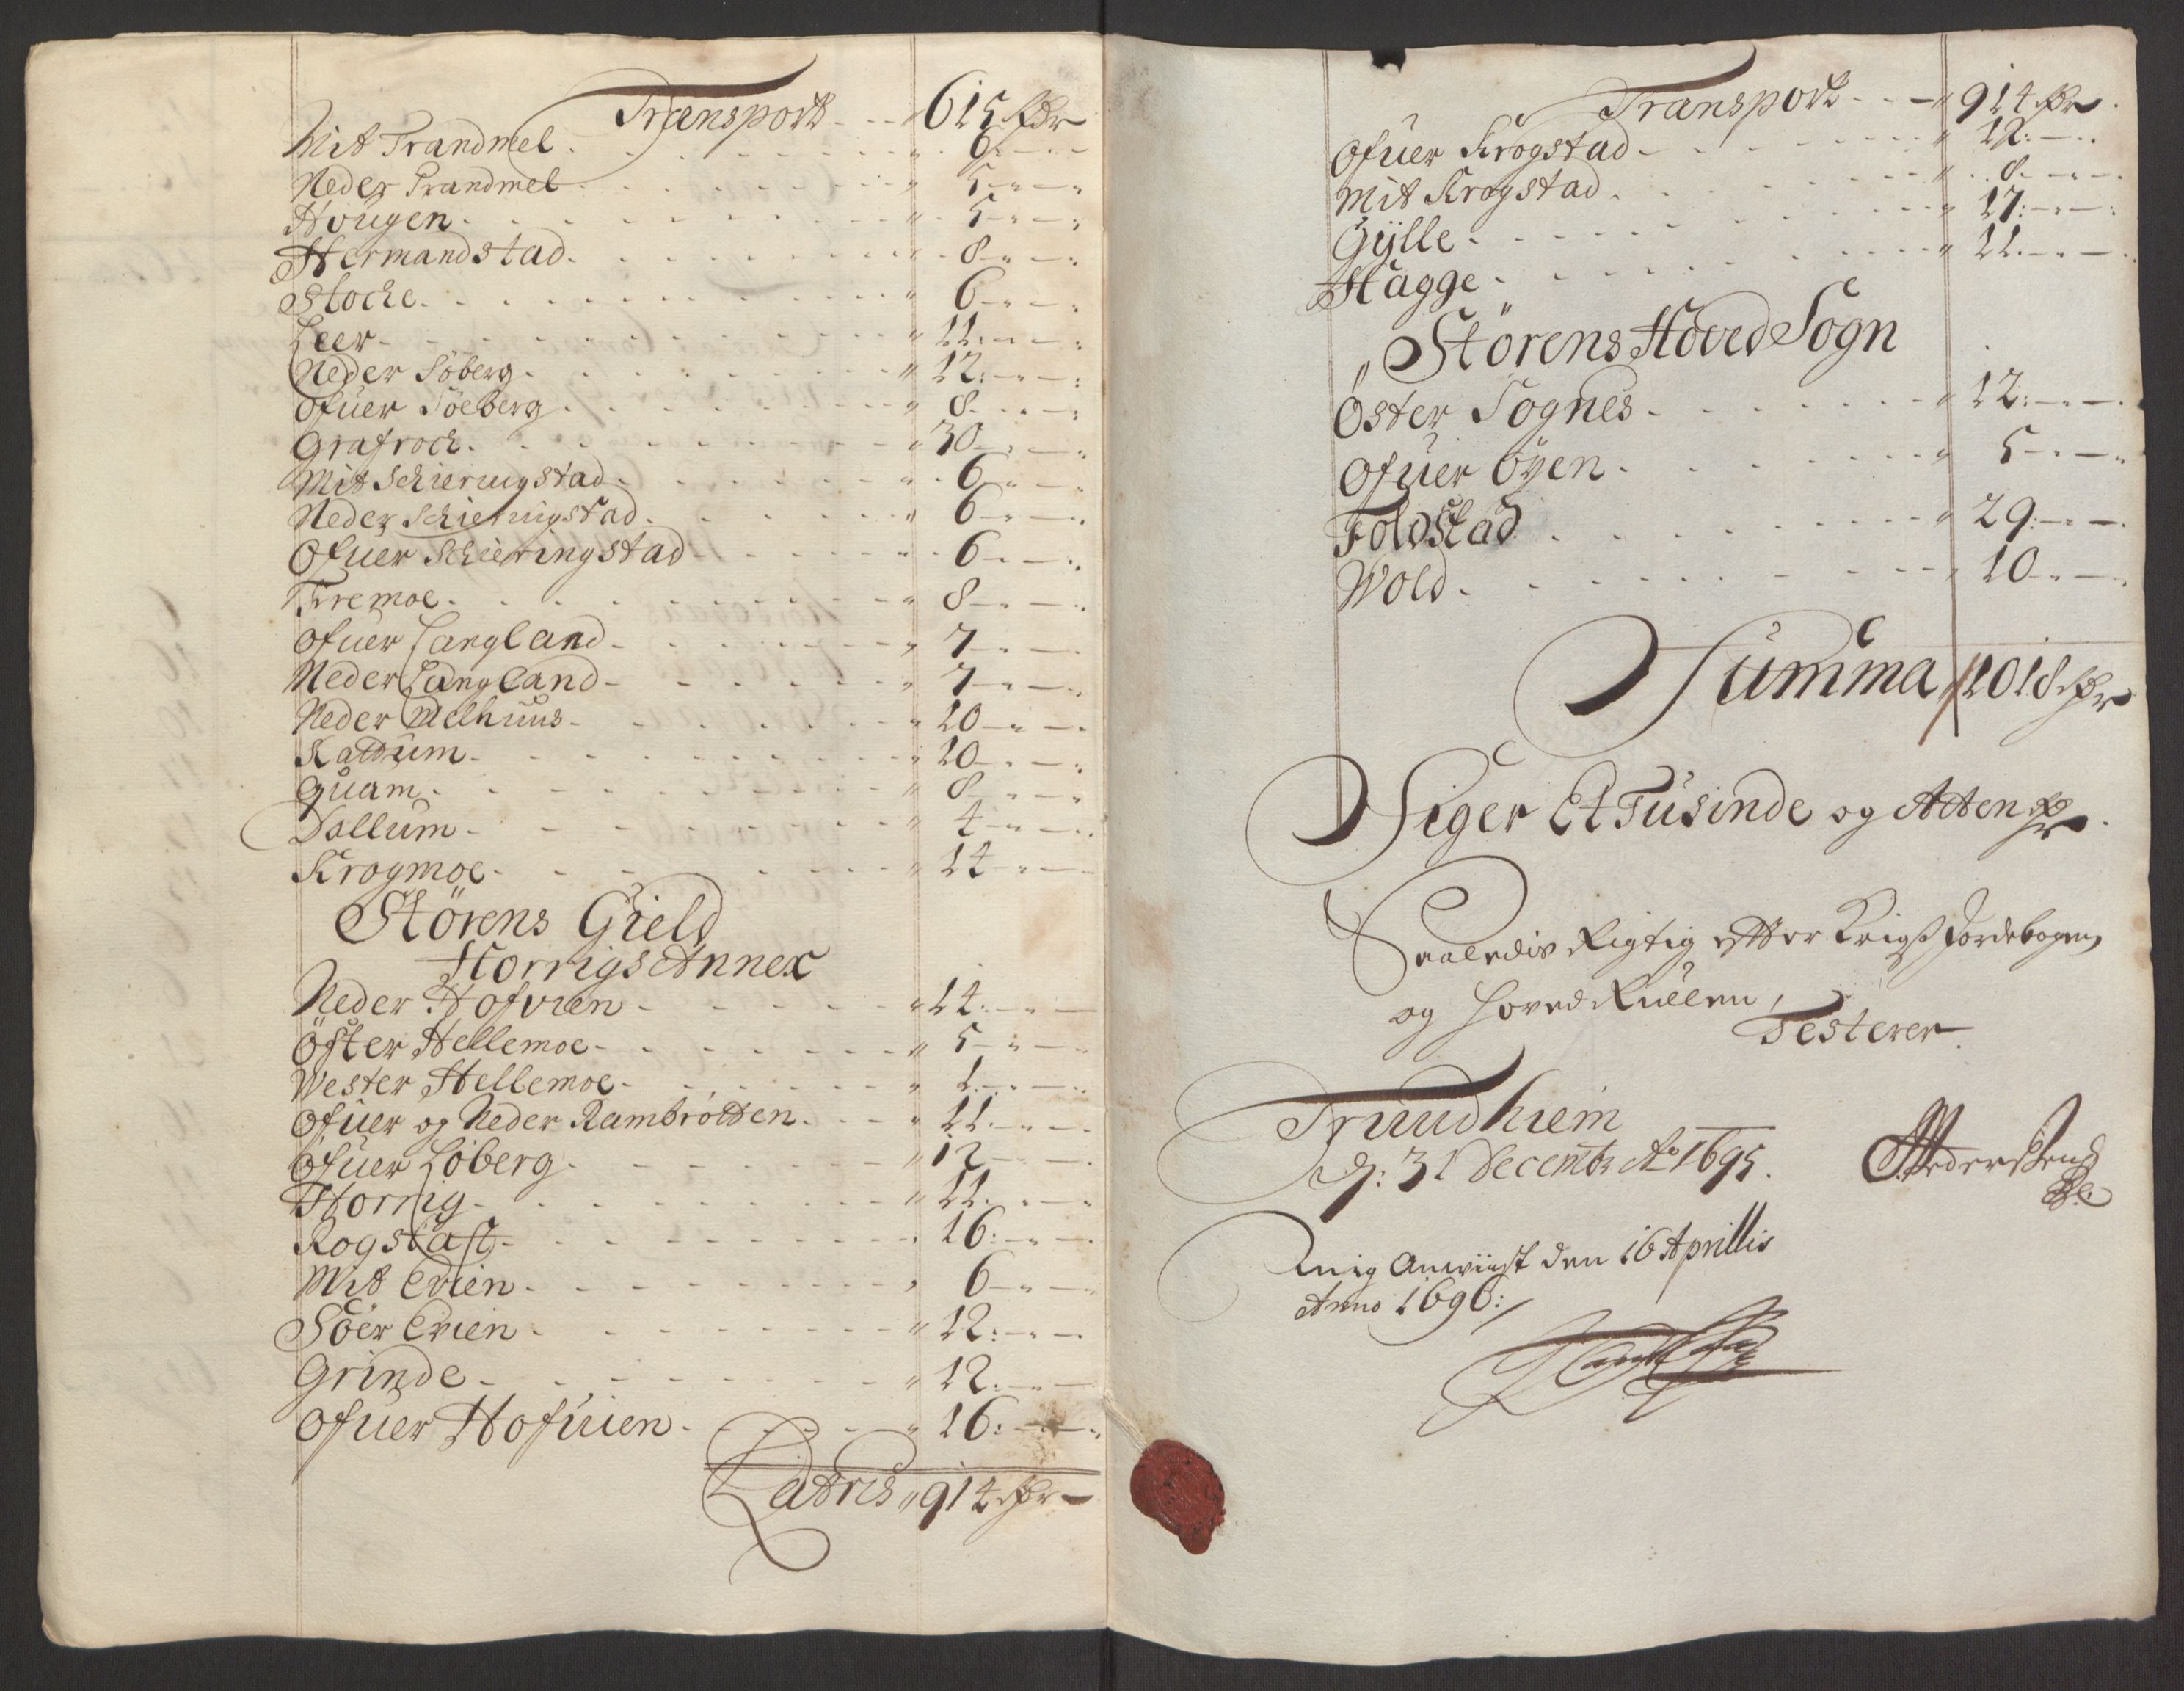 Transport - - - 615 ℔r
Mit Trandmel - - - 6 - - -
Neder Trandmel - - - 5 - - -
Hougen - - - 5 - - -
Hermandstad - - - 8 - - -
Stocke - - - 6 - - -
Leer - - - 11 - - -
Neder Söberg - - - 12 - - -
Ofuer Söeberg - - - 8 - - -
Grafroch - - - 30 - - -
Mit Schieringstad - - - 6 - - -
Neder Schieringstad - - - 6 - - -
Ofuer Schieringstad - - - 6 - - -
Fremoe - - - 8 - - -
Ofuer Langland - - - 7 - - -
Neder Langland - - - 7 - - -
Neder Melhuus - - - 10 - - -
Kattum - - - 10 - - -
Quam - - - 8 - - -
Dallum - - - 4 - - -
Krogmoe - - - 14 - - -
Störens Gield
Horrigs Annex
Neder Hofuien - - - 14 - - -
Öster Hellemoe - - - 5 - - -
Wester Hellemoe - - - 1 - - -
Ofuer og Neder Rambrötten - - - 11 - - -
Ofuer Löberg - - - 12 - - -
Horrig - - - 11 - - -
Rogstad - - - 16 - - -
Mit Evien - - - 6 - - -
Söer Evien - - - 12 - - -
Grinde - - - 12 - - -
Ofuer Hofuien - - - 16 - - -
Latris 914 ℔r
Transport - - - 914 ℔r
Ofuer Krogstad - - - 12 - - -
Mit Krogstad - - - 8 - - -
Gylle - - - 17 - - -
Hagge - - - 11 - - -
Störens Hoved Sogn
Öster Sognes - - - 12 - - -
Ofuer Öyen - - - 5 - - -
Foldstad - - - 29 - - -
Wold - - - 10 - - -
Summa 1018 ℔r
Siger Et Tusinde og Atten ℔r
Saaledis Rigtig efter Krigs Jordebogen
og Hoved Rullen,
Testerer
Trundhiem
d: 31 Decembr Ao 1695.
den 16 Aprillis
Anno 1696: